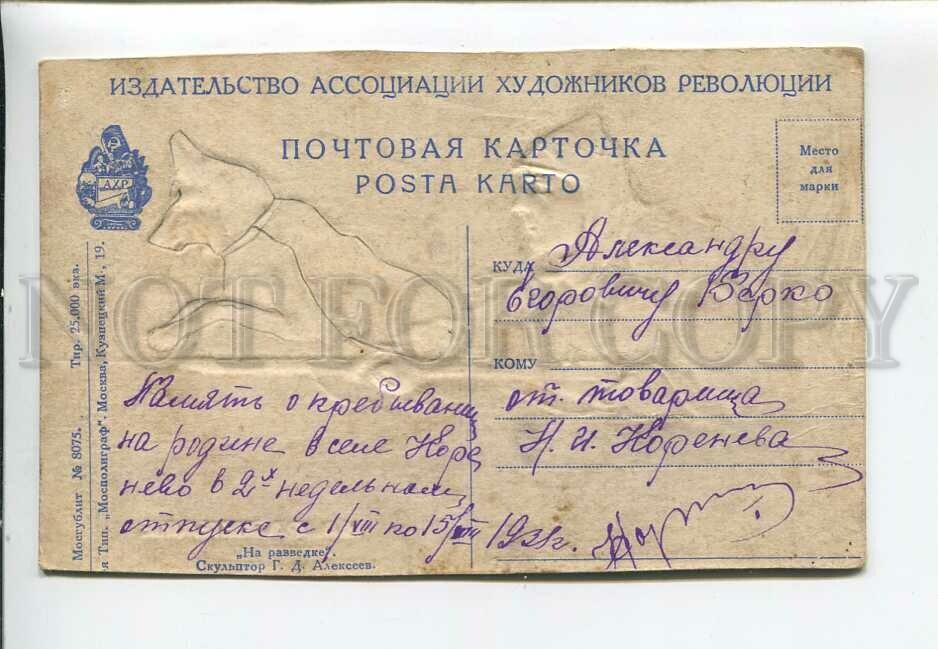 ИЗДАТЕЛЬСТВО АССОЦИАЦИИ ХУДОЖНИКОВ РЕВОЛЮЦИИ
ПОЧТОВАЯ КАРТОЧКА
POSTA KARTO
АХР
Место
для
марки
Мосгублит № 8075. Тир. 25.000 экз.
я Тип. „Мосполиграф". Москва, Кузнецкий М., 19.
КУДА Александру
Егоровичу Берко
КОМУ
от товарища
Н. И. Коренева
Память о пребывании
на родине в селе Коре
нево в 2х недельном
отпуске с 1/VIII по 15/VIII
„На разведке".
Скульптор Г. Д. Алексеев.
NOT FOR COPY